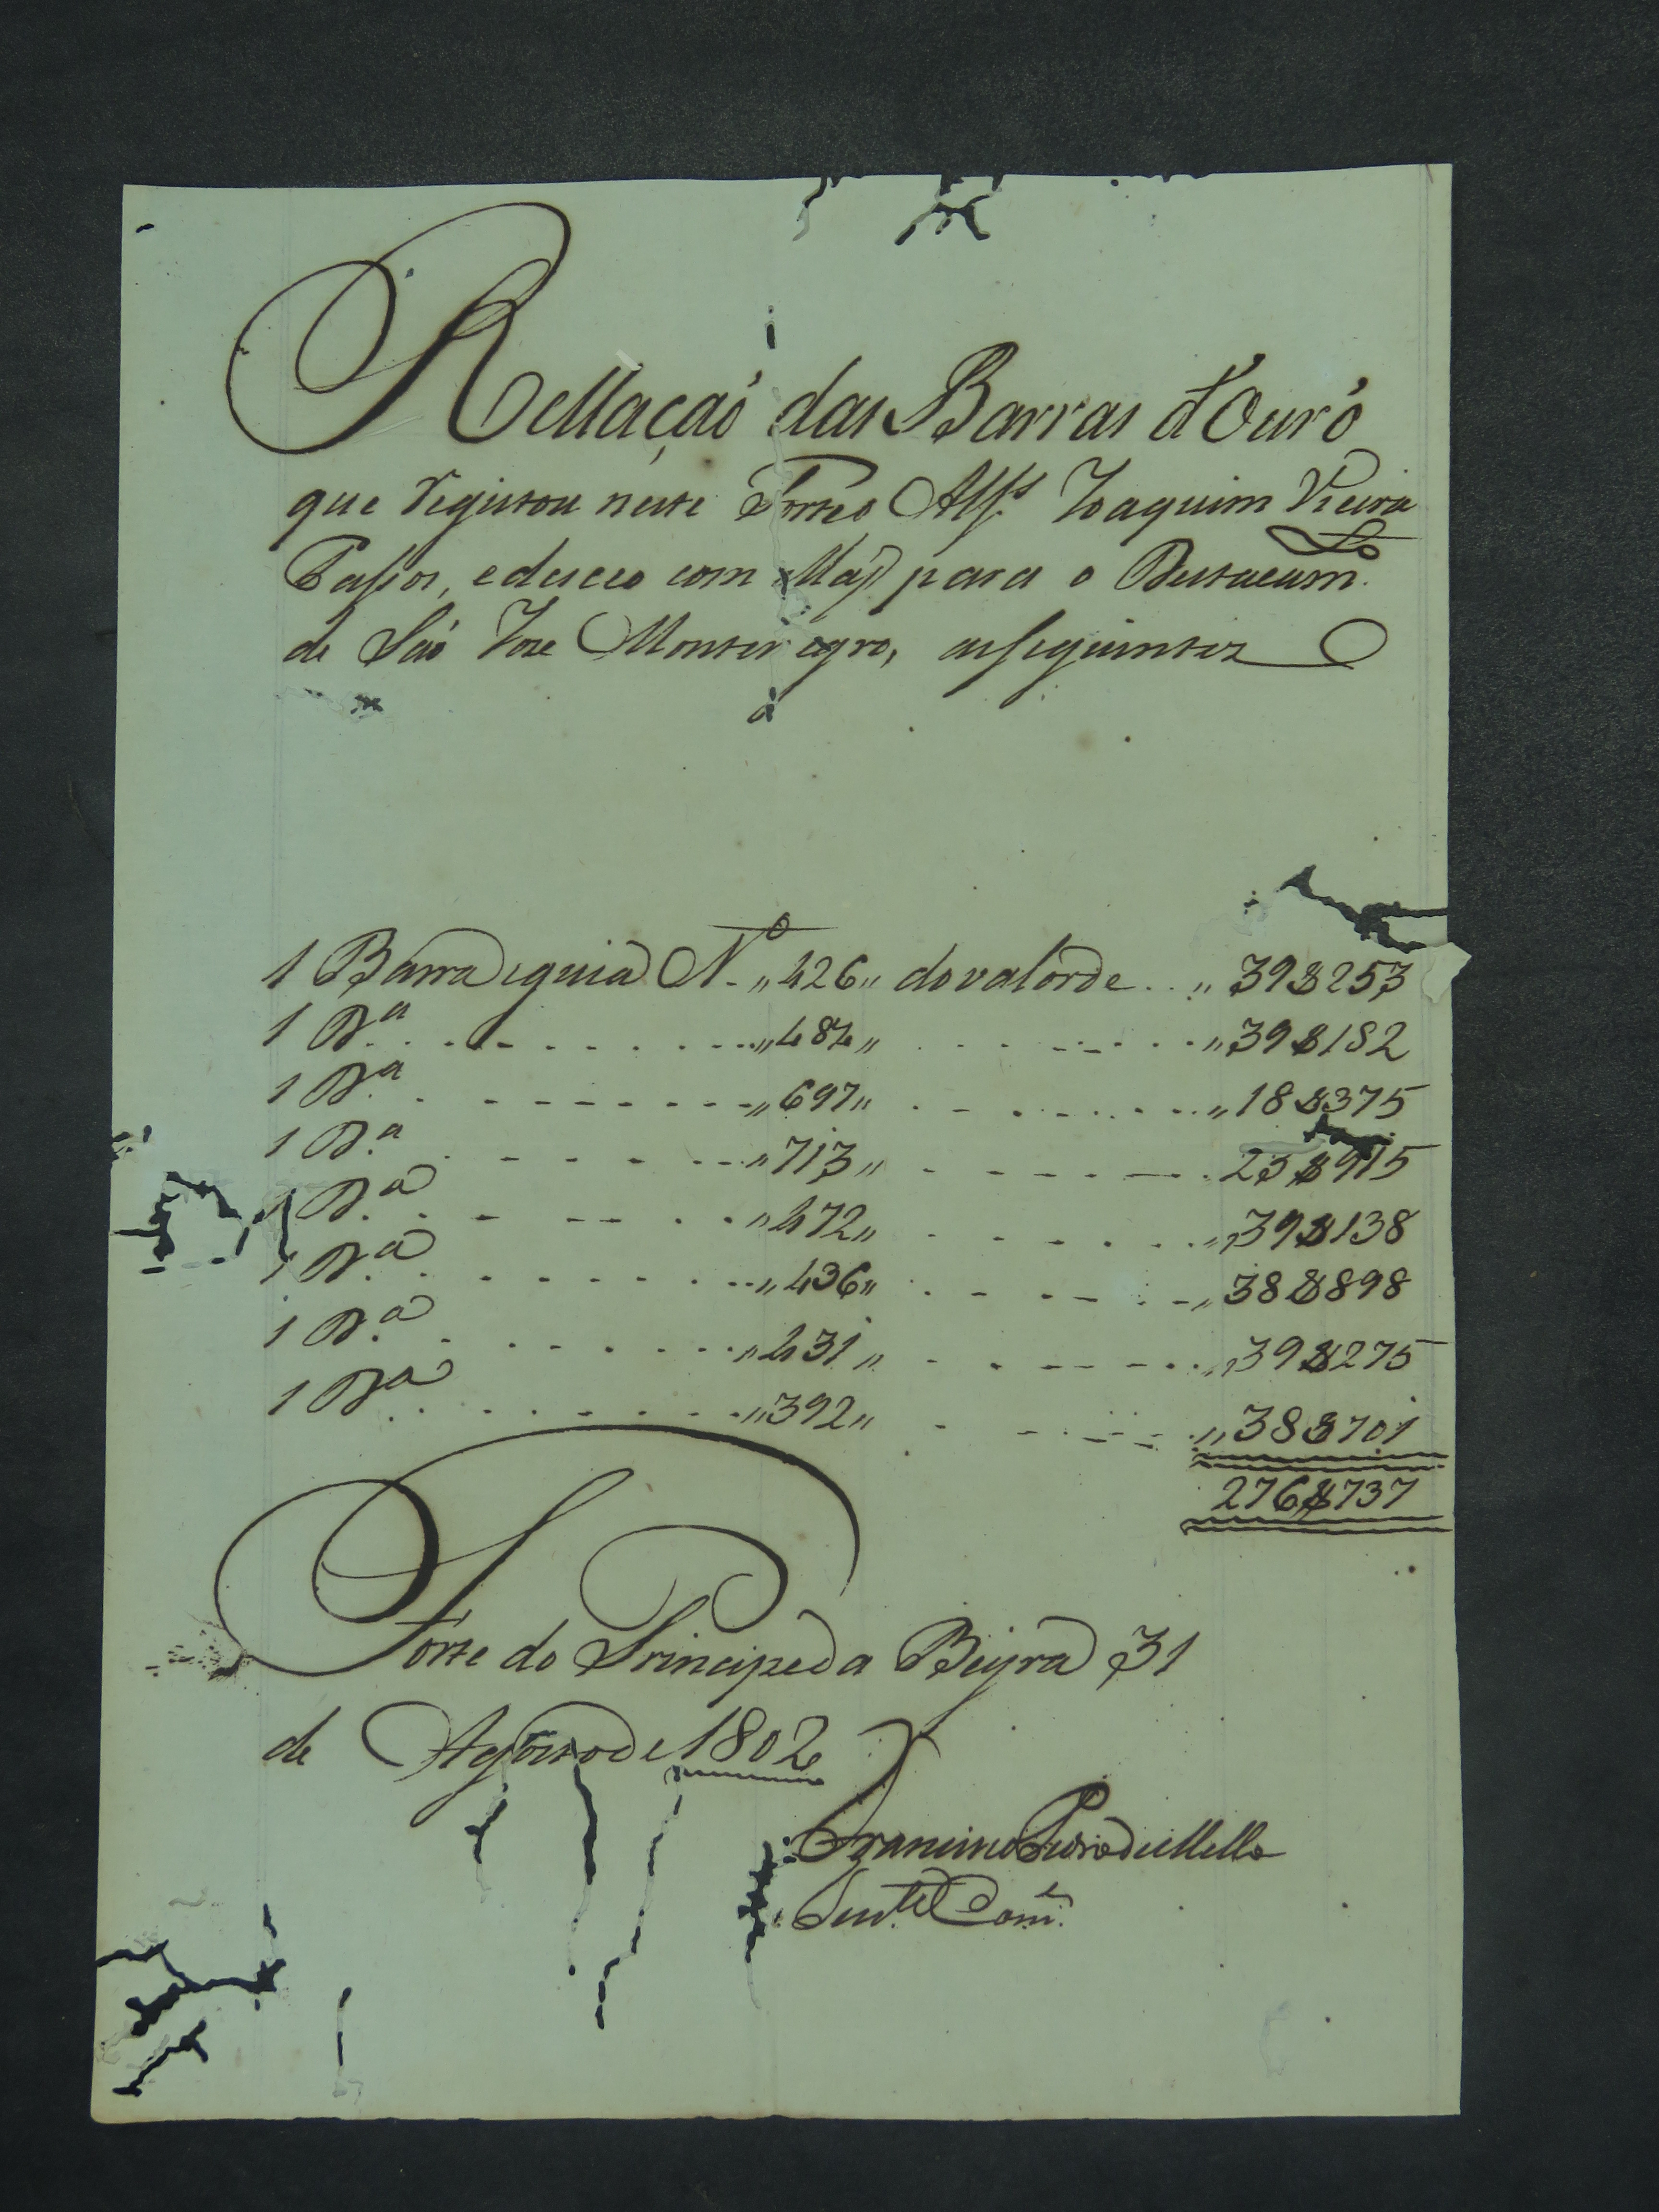 Rellaçaõ das Barras d'Ouro
que registou neste Forte o Alf.s Joaquim Vieira
Passos, e desceo com Maj.r para o Destacam.to
de Saõ Joze Montenegro, asseguintes
1 Barra eguia N.o „426„ dovalorde .. „39$253
1 D.a . . . . . . . „484„ . . . . . . „39$182
1 D.a . . . . . . . „697„ . . . . . . „18$375
1 D.a . . . . . . . „713„ . . . . . . 23$915
1 D.a . . . . . . . „472„ . . . . . . „39$138
1 D.a . . . . . . . „436„ . . . . . . „38$898
1 D.a . . . . . . . „431„ . . . . . . „39$275
1 D.a . . . . . . . „392„ . . . . . . „38$701
276$737
Forte do Principe da Beyra 31
de Agosto de 1802
Francisco Pedro de Mello
Ten.te Com.e